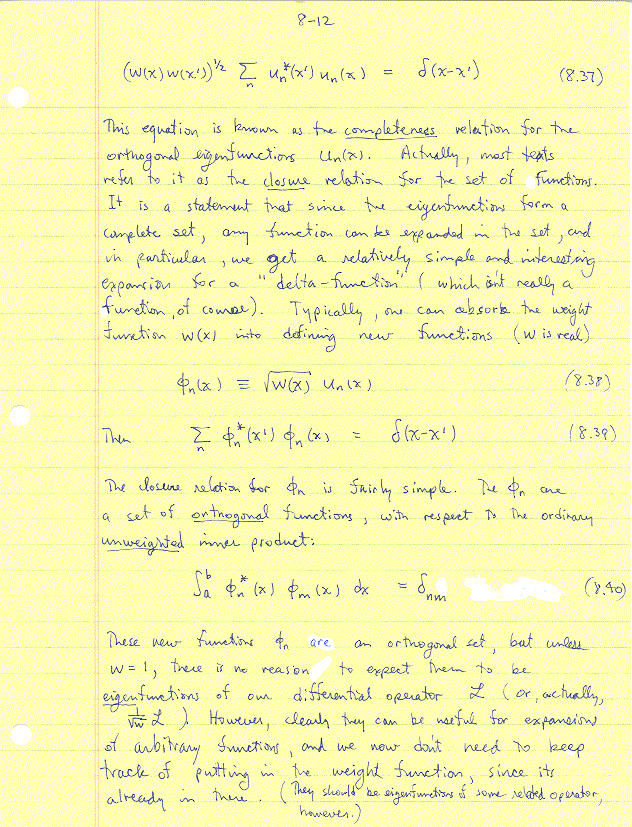 8-12
(w(x) w(x'))^{1/2} Σ_n u_n^*(x') u_n(x) = δ(x-x') (8.37)
This equation is known as the completeness relation for the
orthogonal eigenfunctions u_n(x). Actually, most texts
refer to it as the closure relation for the set of functions.
It is a statement that since the eigenfunctions form a
complete set, any function can be expanded in the set, and
in particular, we get a relatively simple and interesting
expansion for a "delta-function" (which isn't really a
function, of course). Typically, one can absorb the weight
function w(x) into defining new functions (w is real)
ϕ_n(x) ≡ √w(x) u_n(x) (8.38)
Then Σ_n ϕ_n^*(x') ϕ_n(x) = δ(x-x') (8.39)
The closure relation for ϕ_n is fairly simple. The ϕ_n are
a set of orthogonal functions, with respect to the ordinary
unweighted inner product:
∫_a^b ϕ_n^*(x) ϕ_m(x) dx = δ_nm (8.40)
These new functions ϕ_n are an orthogonal set, but unless
w = 1, there is no reason to expect them to be
eigenfunctions of our differential operator ℒ (or, actually,
1/√w ℒ). However, clearly they can be useful for expansion
of arbitrary functions, and we now don't need to keep
track of putting in the weight function, since its
already in there. (They should be eigenfunctions of some related operator,
however.)